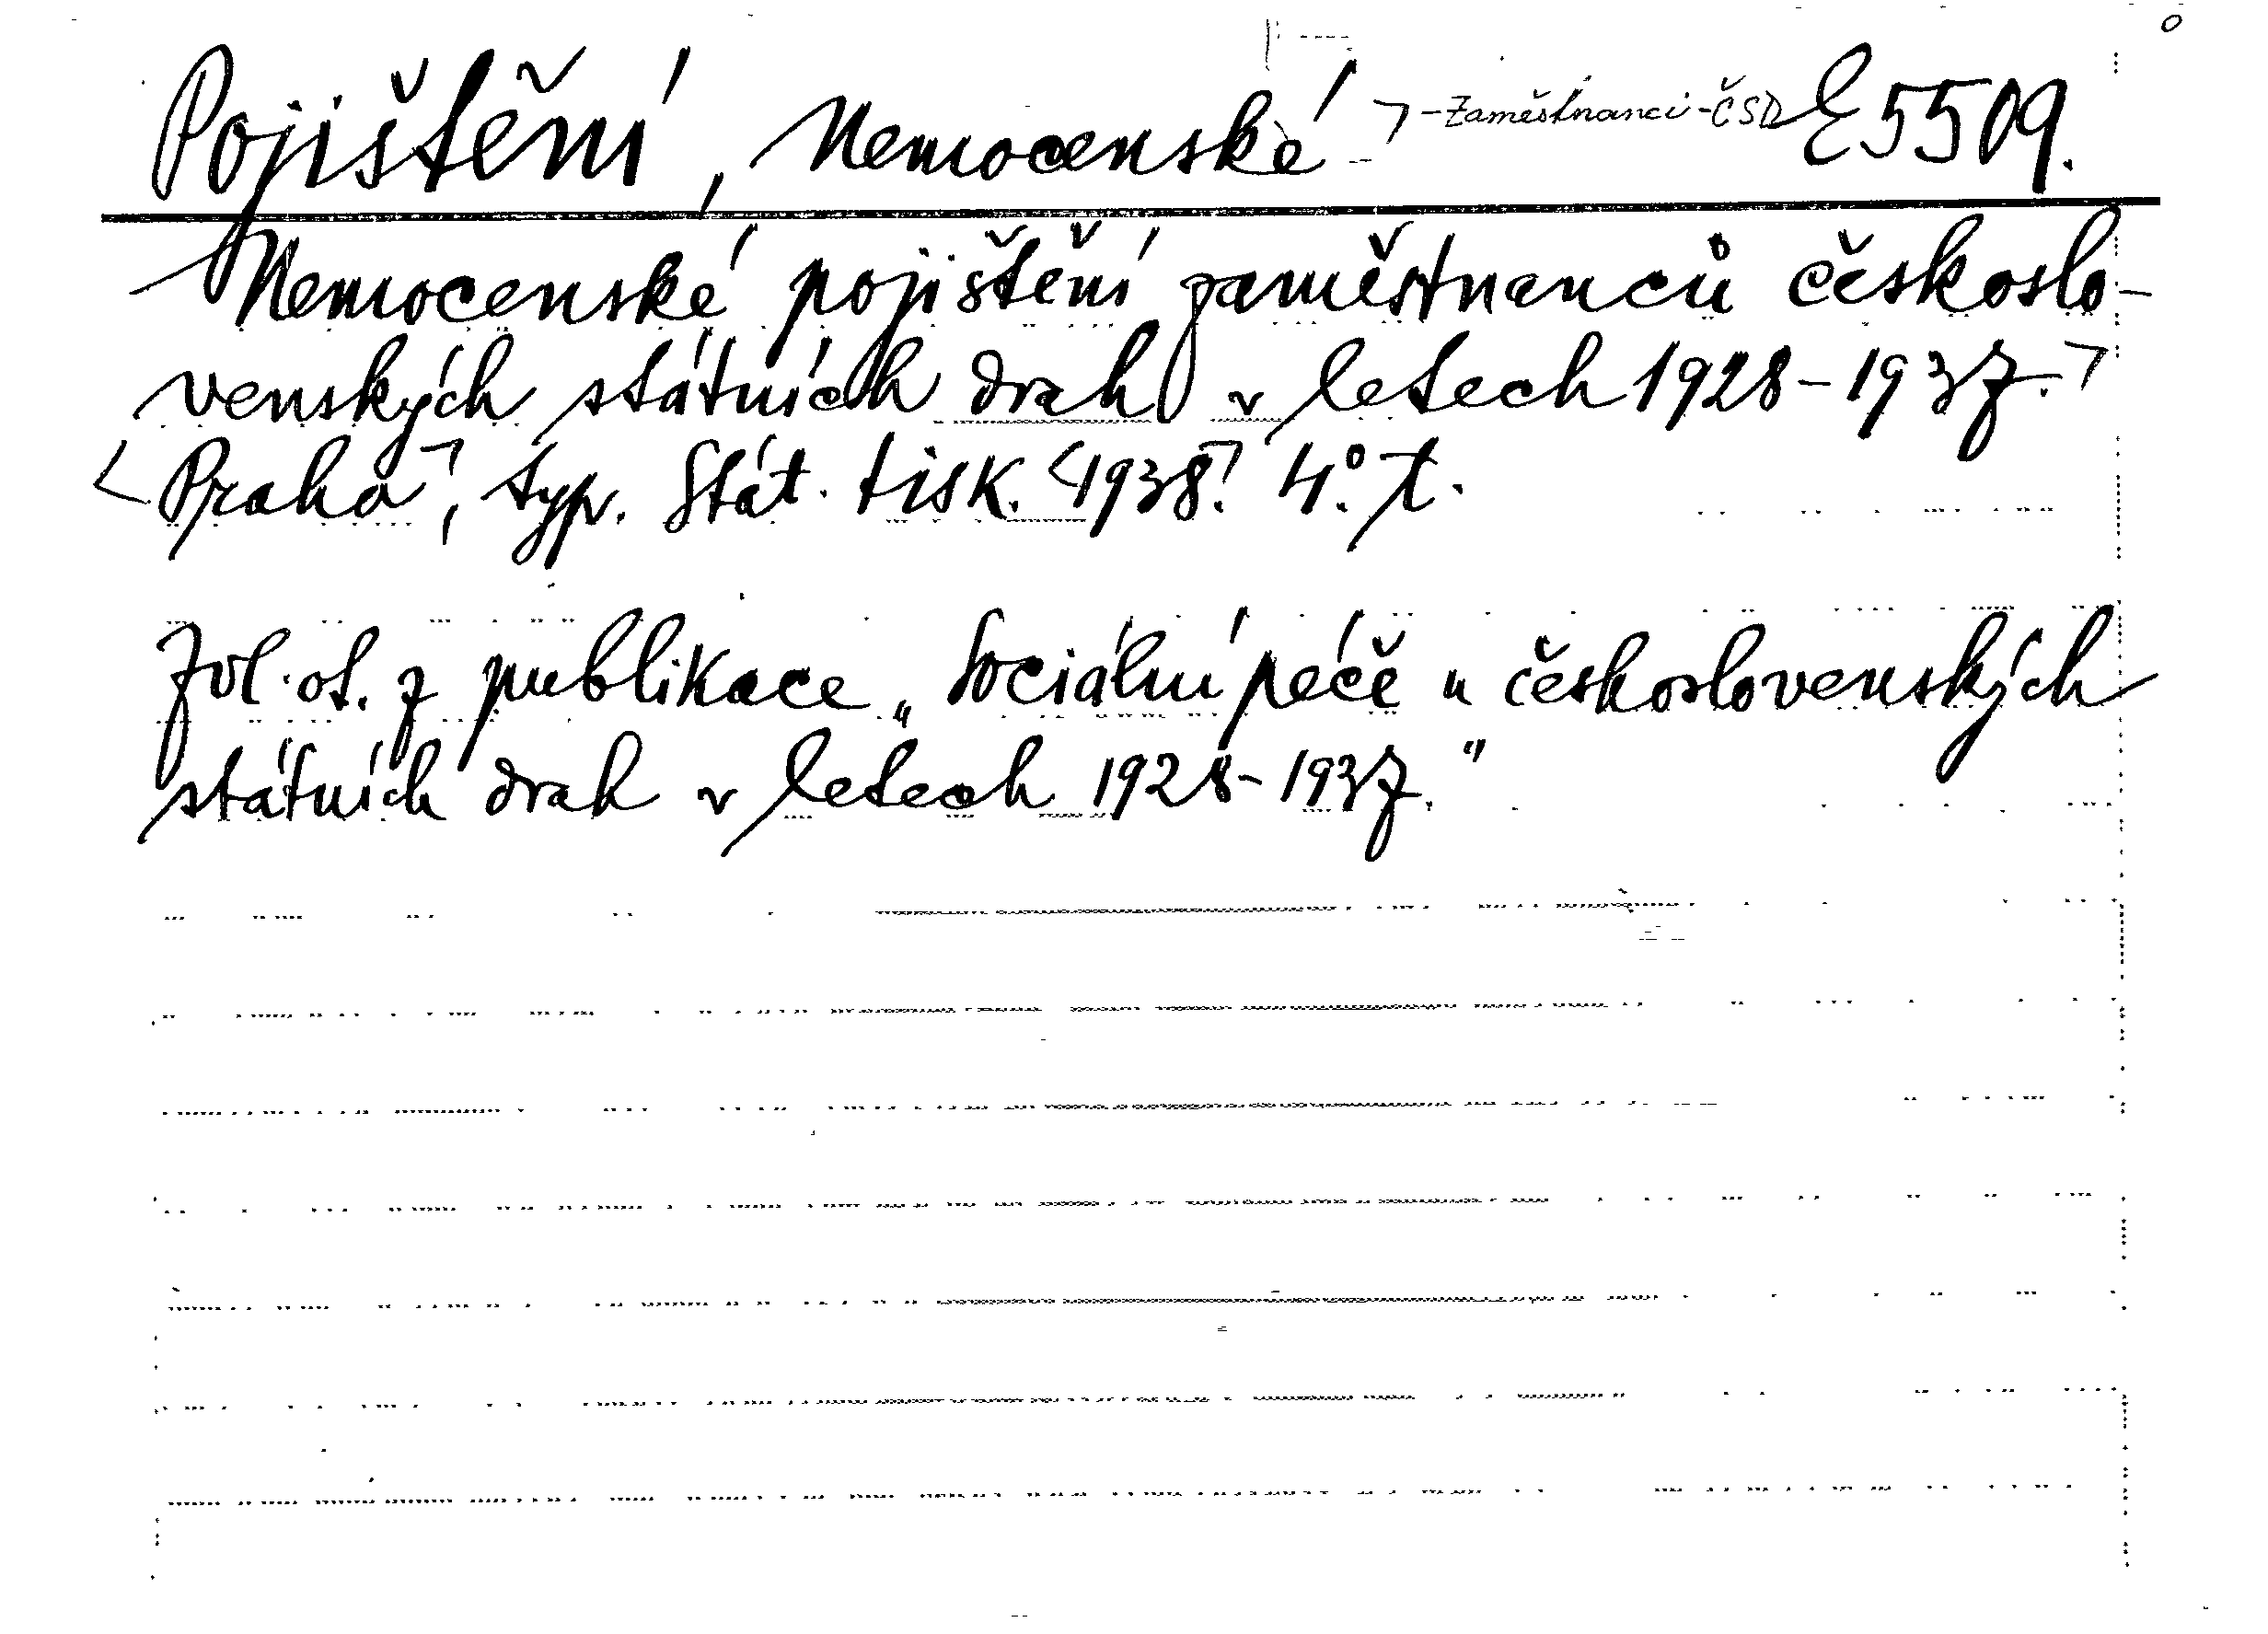 Pojištění, Nemocenské ⌝ -Zaměstnanci-ČSD E 5509.
Nemocenské pojištění zaměstnanců českoslo-
venských státních drah v letech 1928-1937.⌝
<Praha⌝, typ. Stát. tisk. <1938⌝. 4°. t.
Zvl. ot. z publikace „Sociální péče u československých
státních drah v letech 1928-1937."